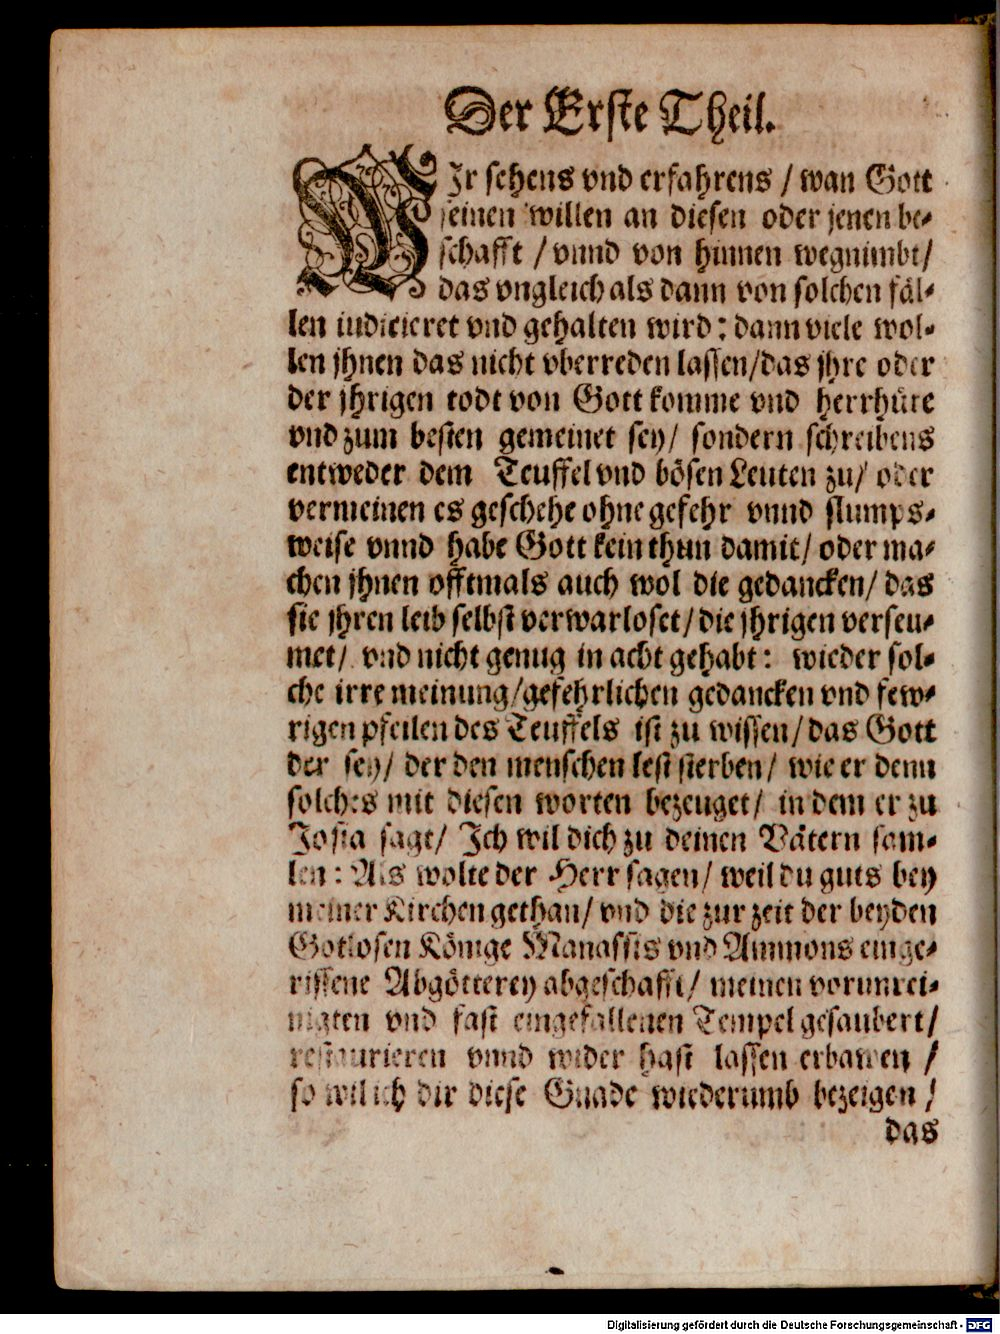 Der Erste Theil.
WIr sehens vnd erfahrens / wan Gott
seinen willen an diesen oder jenen be-
schafft / vnnd von hinnen wegnimbt/
das vngleich als dann von solchen fäl-
len iudicieret vnd gehalten wird: dann viele wol-
len jhnen das nicht vberreden lassen/das jhre oder
der jhrigen todt von Gott komme vnd herrhüre
vnd zum besten gemeinet sey/ sondern schreibens
entweder dem Teuffel vnd bösen Leuten zu/ oder
vermeinen es geschehe ohne gefehr vnnd slumps-
weise vnnd habe Gott kein thun damit/ oder ma-
chen jhnen offtmals auch wol die gedancken/ das
sie jhren leib selbst verwarloset/ die jhrigen verseu-
met/ vnd nicht genug in acht gehabt: wieder sol-
che irre meinung/gefehrlichen gedancken vnd few-
rigen pfeilen des Teuffels ist zu wissen/ das Gott
der sey/ der den menschen lest sterben/ wie er denn
solches mit diesen worten bezeuget/ in dem er zu
Josia sagt/ Ich wil dich zu deinen Vätern sam-
len: Als wolte der Herr sagen/ weil du guts bey
meiner Kirchen gethan/ vnd die zur zeit der beyden
Gotlosen Könige Manassis vnd Ammons einge-
rissene Abgötterey abgeschafft/ meinen vorunrei-
nigten vnd fast eingefallenen Tempel gesaubert/
restaurieren vnnd wider hast lassen erbawen /
so wil ich dir diese Gnade wiederumb bezeigen /
das
Digitalisierung gefördert durch die Deutsche Forschungsgemeinschaft - DFG